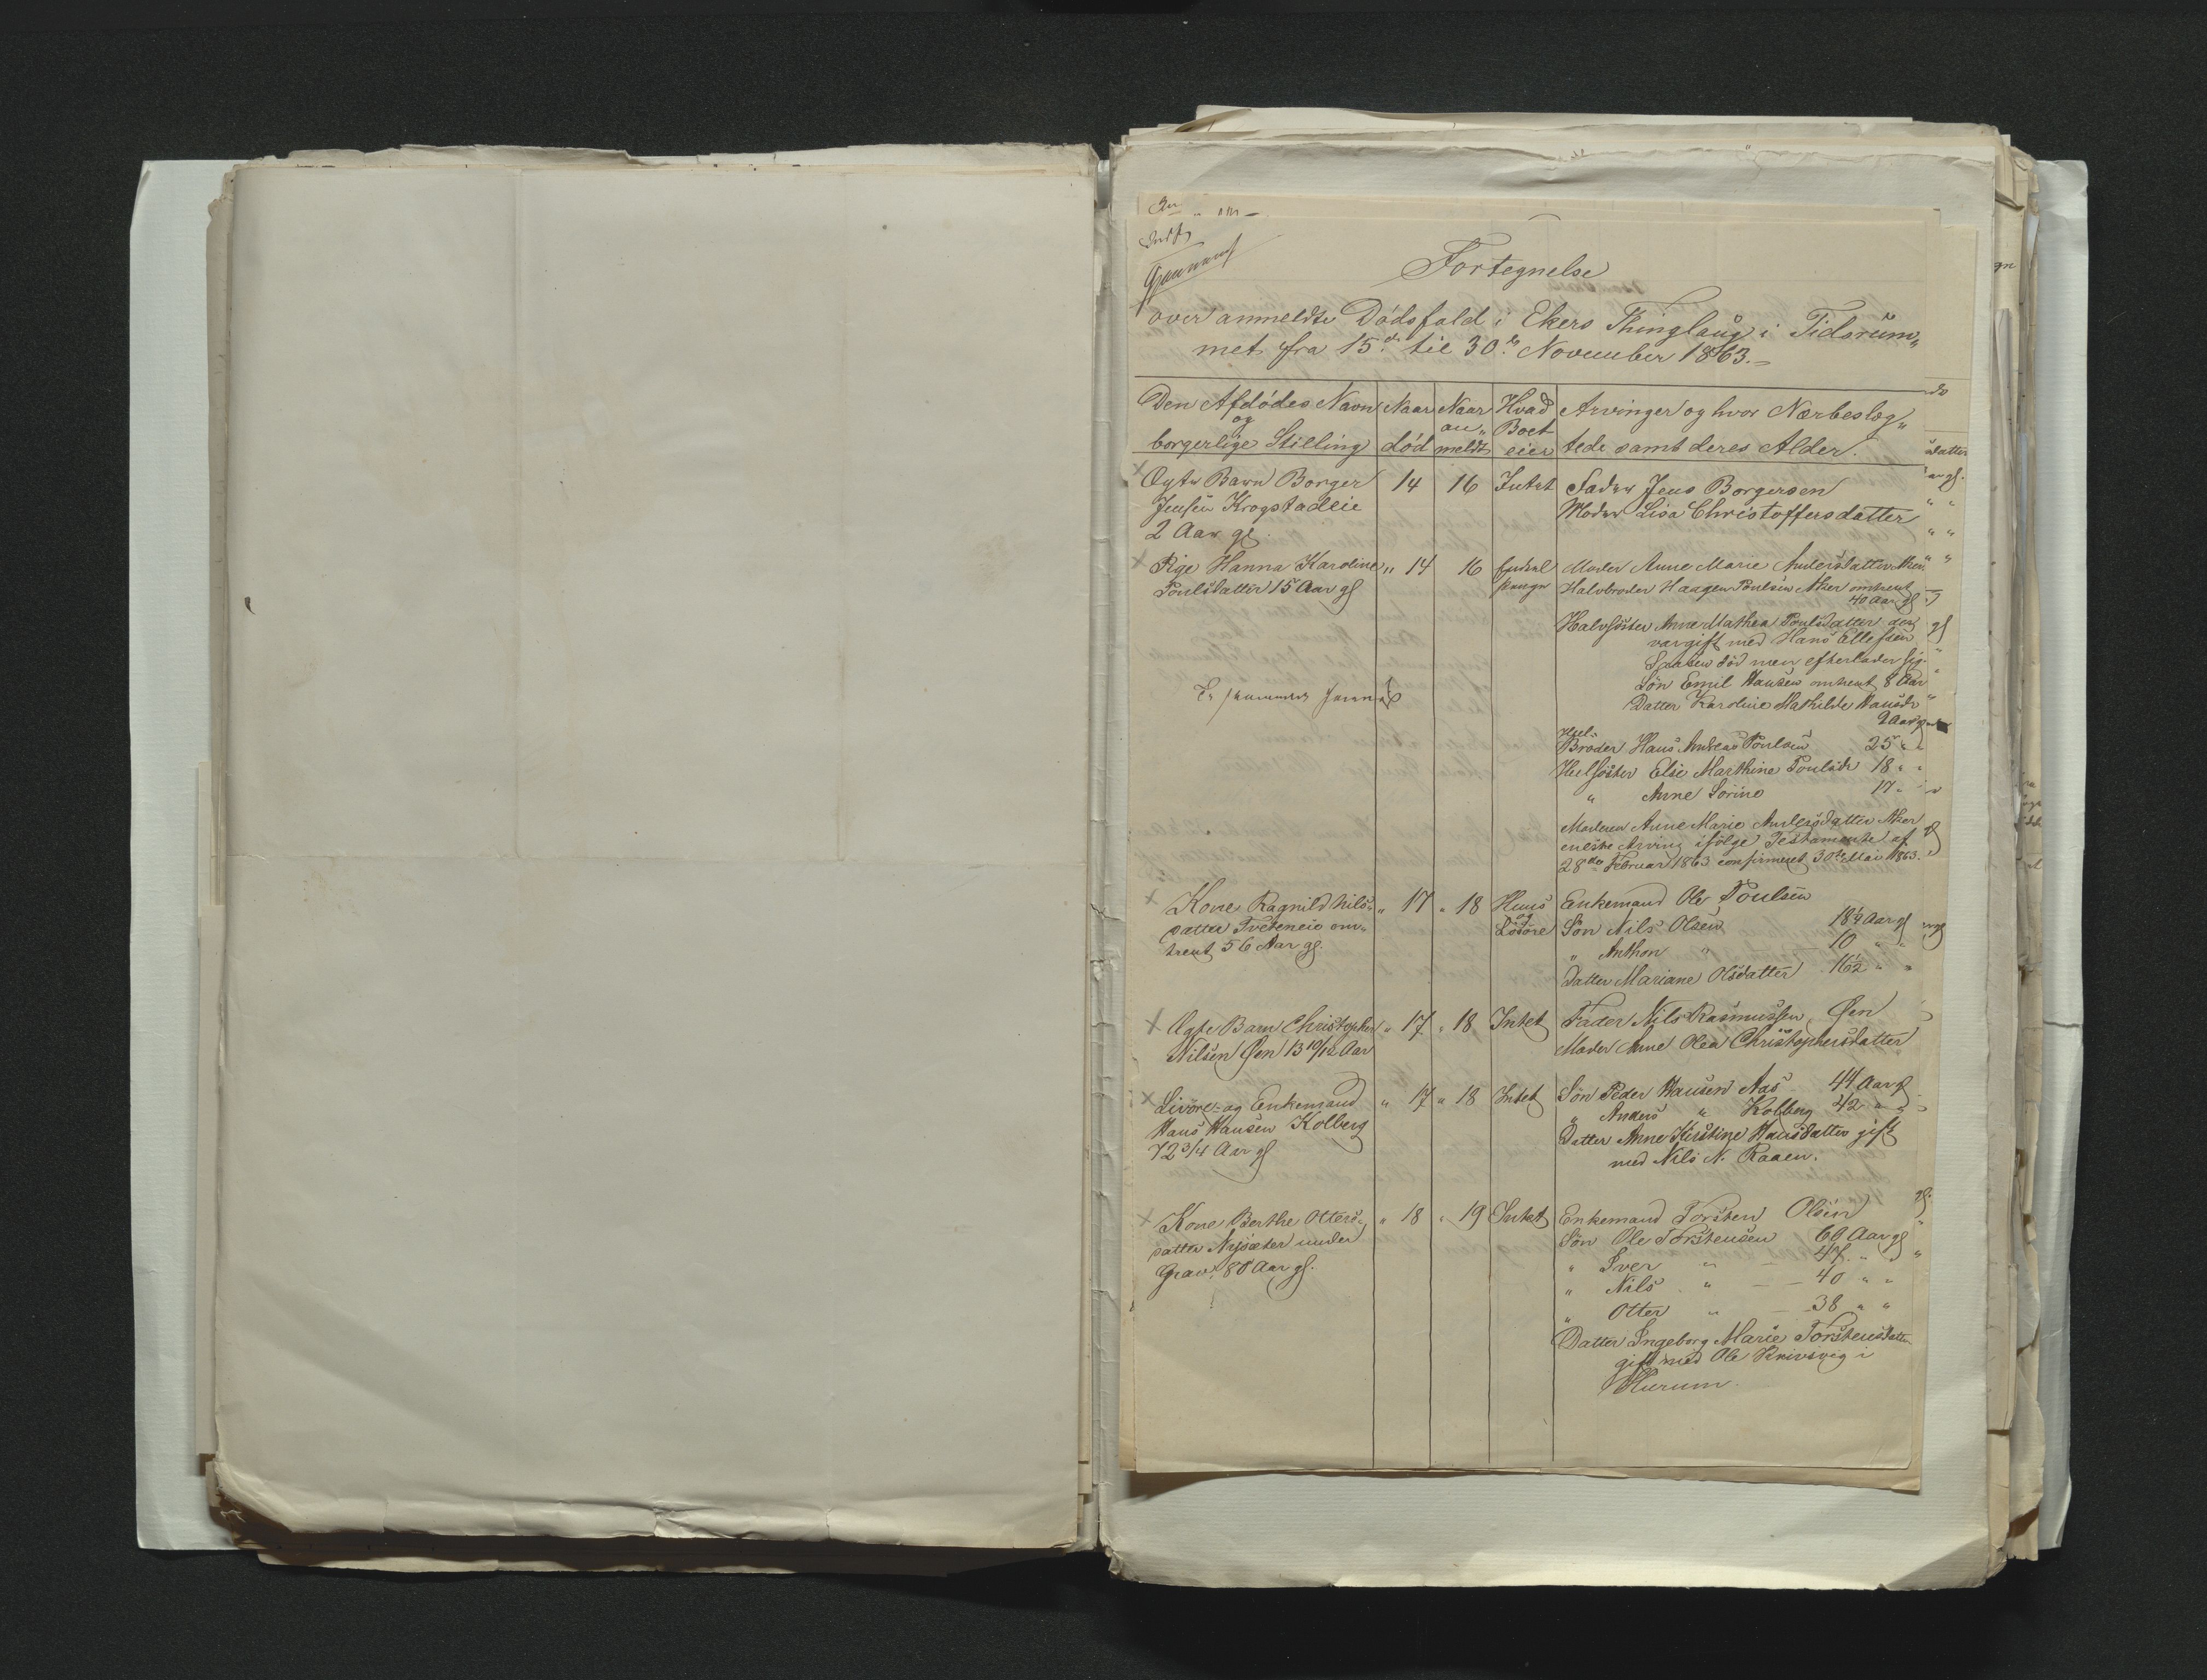 Fortegnelse
over anmeldte Dödsfald i Ekers Thinglaug i Tidsrum„
met fra 15de til 30te November 1863.
Den Afdödes Navn
og
borgerlige Stilling
Naar
död
Naar
an„
meldt
Hvad
Boet
eier
Arvinger og hvor Nærbeslæg„
tede samt deres Alder.
Ægte Barn Borger
Jensen Krogstadeie
2 Aar gl.
14 16 Intet
Fader Jens Borgersen
Moder Lisa Christoffersdatter
Pige Hanna Karoline
Poulsdatter 15 Aar gl
" 14 16
Moder Anne Marie Andersdatter Aker
Halvbroder Haagen Poulsen Aker omtrent
40 Aar gl
Halvsöster Anne Mathea Poulsdatter
var gift med Hans Ellefsen
död men efterlader sig
Sön Emil Hansen omtrent 8 Aar
Datter Karoline Mathilde Hansdr
9 Aar gl
Heel-
Broder Hans Andreas Poulsen 25 " "
Helsöster Elise Marthine Poulsdr 18 " "
" Anne Sorine 17 "
Moderen Anne Marie Andersdatter Aker
eneste Arving ifölge Testamente af
28de Februar 1863 confirmeret 30te Mai 1863.
Kone Ragnild Nils-
datter Tveteneie om-
trent 56 Aar gl.
" 17 " 18 Huus
og
Lösöre
Enkemand Ole Poulsen
Sön Nils Olsen 18¼ Aar gl
" Anthon " 10 " "
Datter Mariane Olsdatter 16½ " "
Ægte Barn Christopher
Nilsen Øen 13 10/12 Aar
" 17 " 18 Intet
Fader Nils Rasmussen Øen
Moder Anne Olea Christophersdatter
Livöre- og Enkemand
Hans Hansen Kolberg
72 3/4 Aar gl
" 17 " 18 Intet
Sön Peder Hansen Aas 44 Aar gl
" Anders " Kolberg 42 " "
Datter Anne Kirstine Hansdatter gift
med Nils N. Raaen.
Kone Berthe Otters-
datter Nysæter under
Grav, 80 Aar gl.
" 18 " 19 Intet
Enkemand Torsten Olsen
Sön Ole Torstensen 60 Aar gl
" Iver " 47 "
" Nils " 40 " "
" Otter " 38 " "
Datter Ingeborg Marie Torstensdatter
gift med Ole Knivsvig i
Hurum.